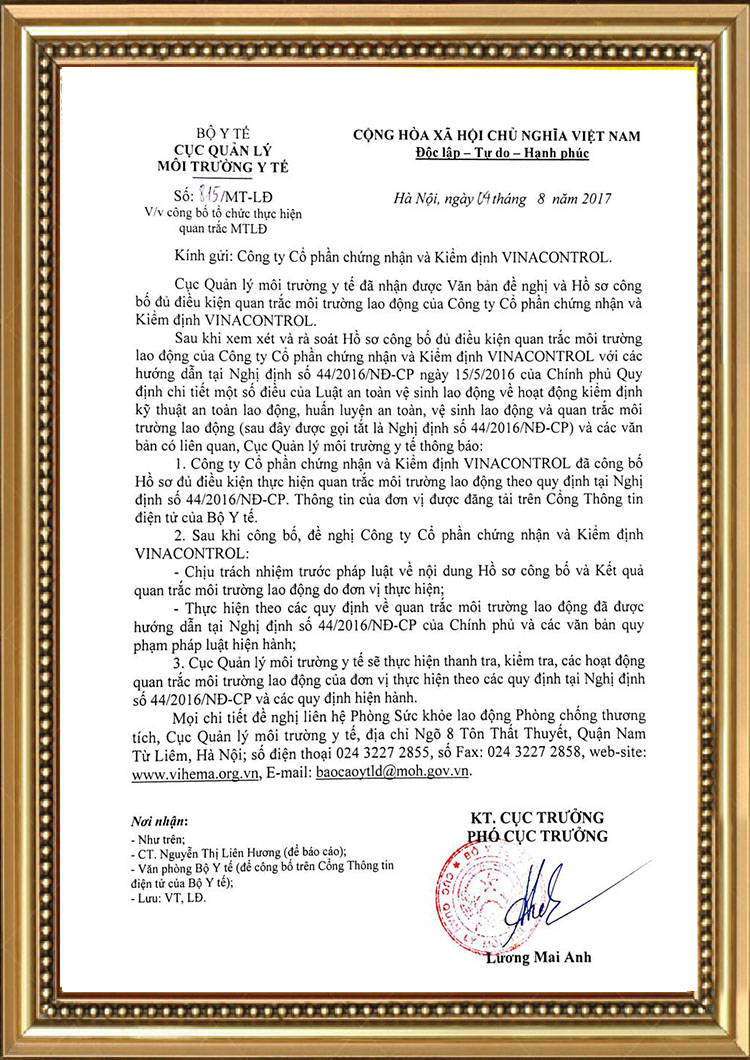 BỘ Y TẾ
CỤC QUẢN LÝ
MÔI TRƯỜNG Y TẾ
CỘNG HÒA XÃ HỘI CHỦ NGHĨA VIỆT NAM
Độc lập – Tự do – Hạnh phúc
Số: 815/MT-LĐ
V/v công bố tổ chức thực hiện
quan trắc MTLĐ
Hà Nội, ngày 04 tháng 8 năm 2017
Kính gửi: Công ty Cổ phần chứng nhận và Kiểm định VINACONTROL.
Cục Quản lý môi trường y tế đã nhận được Văn bản đề nghị và Hồ sơ công
bố đủ điều kiện quan trắc môi trường lao động của Công ty Cổ phần chứng nhận và
Kiểm định VINACONTROL.
Sau khi xem xét và rà soát Hồ sơ công bố đủ điều kiện quan trắc môi trường
lao động của Công ty Cổ phần chứng nhận và Kiểm định VINACONTROL với các
hướng dẫn tại Nghị định số 44/2016/NĐ-CP ngày 15/5/2016 của Chính phủ Quy
định chi tiết một số điều của Luật an toàn vệ sinh lao động về hoạt động kiểm định
kỹ thuật an toàn lao động, huấn luyện an toàn, vệ sinh lao động và quan trắc môi
trường lao động (sau đây được gọi tắt là Nghị định số 44/2016/NĐ-CP) và các văn
bản có liên quan, Cục Quản lý môi trường y tế thông báo:
1. Công ty Cổ phần chứng nhận và Kiểm định VINACONTROL đã công bố
Hồ sơ đủ điều kiện thực hiện quan trắc môi trường lao động theo quy định tại Nghị
định số 44/2016/NĐ-CP. Thông tin của đơn vị được đăng tải trên Cổng Thông tin
điện tử của Bộ Y tế.
2. Sau khi công bố, đề nghị Công ty Cổ phần chứng nhận và Kiểm định
VINACONTROL:
- Chịu trách nhiệm trước pháp luật về nội dung Hồ sơ công bố và Kết quả
quan trắc môi trường lao động do đơn vị thực hiện;
- Thực hiện theo các quy định về quan trắc môi trường lao động đã được
hướng dẫn tại Nghị định số 44/2016/NĐ-CP của Chính phủ và các văn bản quy
phạm pháp luật hiện hành;
3. Cục Quản lý môi trường y tế sẽ thực hiện thanh tra, kiểm tra, các hoạt động
quan trắc môi trường lao động của đơn vị thực hiện theo các quy định tại Nghị định
số 44/2016/NĐ-CP và các quy định hiện hành.
Mọi chi tiết đề nghị liên hệ Phòng Sức khỏe lao động Phòng chống thương
tích, Cục Quản lý môi trường y tế, địa chỉ Ngõ 8 Tôn Thất Thuyết, Quận Nam
Từ Liêm, Hà Nội; số điện thoại 024 3227 2855, số Fax: 024 3227 2858, web-site:
www.vihema.org.vn, E-mail: baocaoytld@moh.gov.vn.
Nơi nhận:
- Như trên;
- CT. Nguyễn Thị Liên Hương (để báo cáo);
- Văn phòng Bộ Y tế (để công bố trên Cổng Thông tin
điện tử của Bộ Y tế);
- Lưu: VT, LĐ.
KT. CỤC TRƯỞNG
PHÓ CỤC TRƯỞNG
BỘ Y
Lương Mai Anh